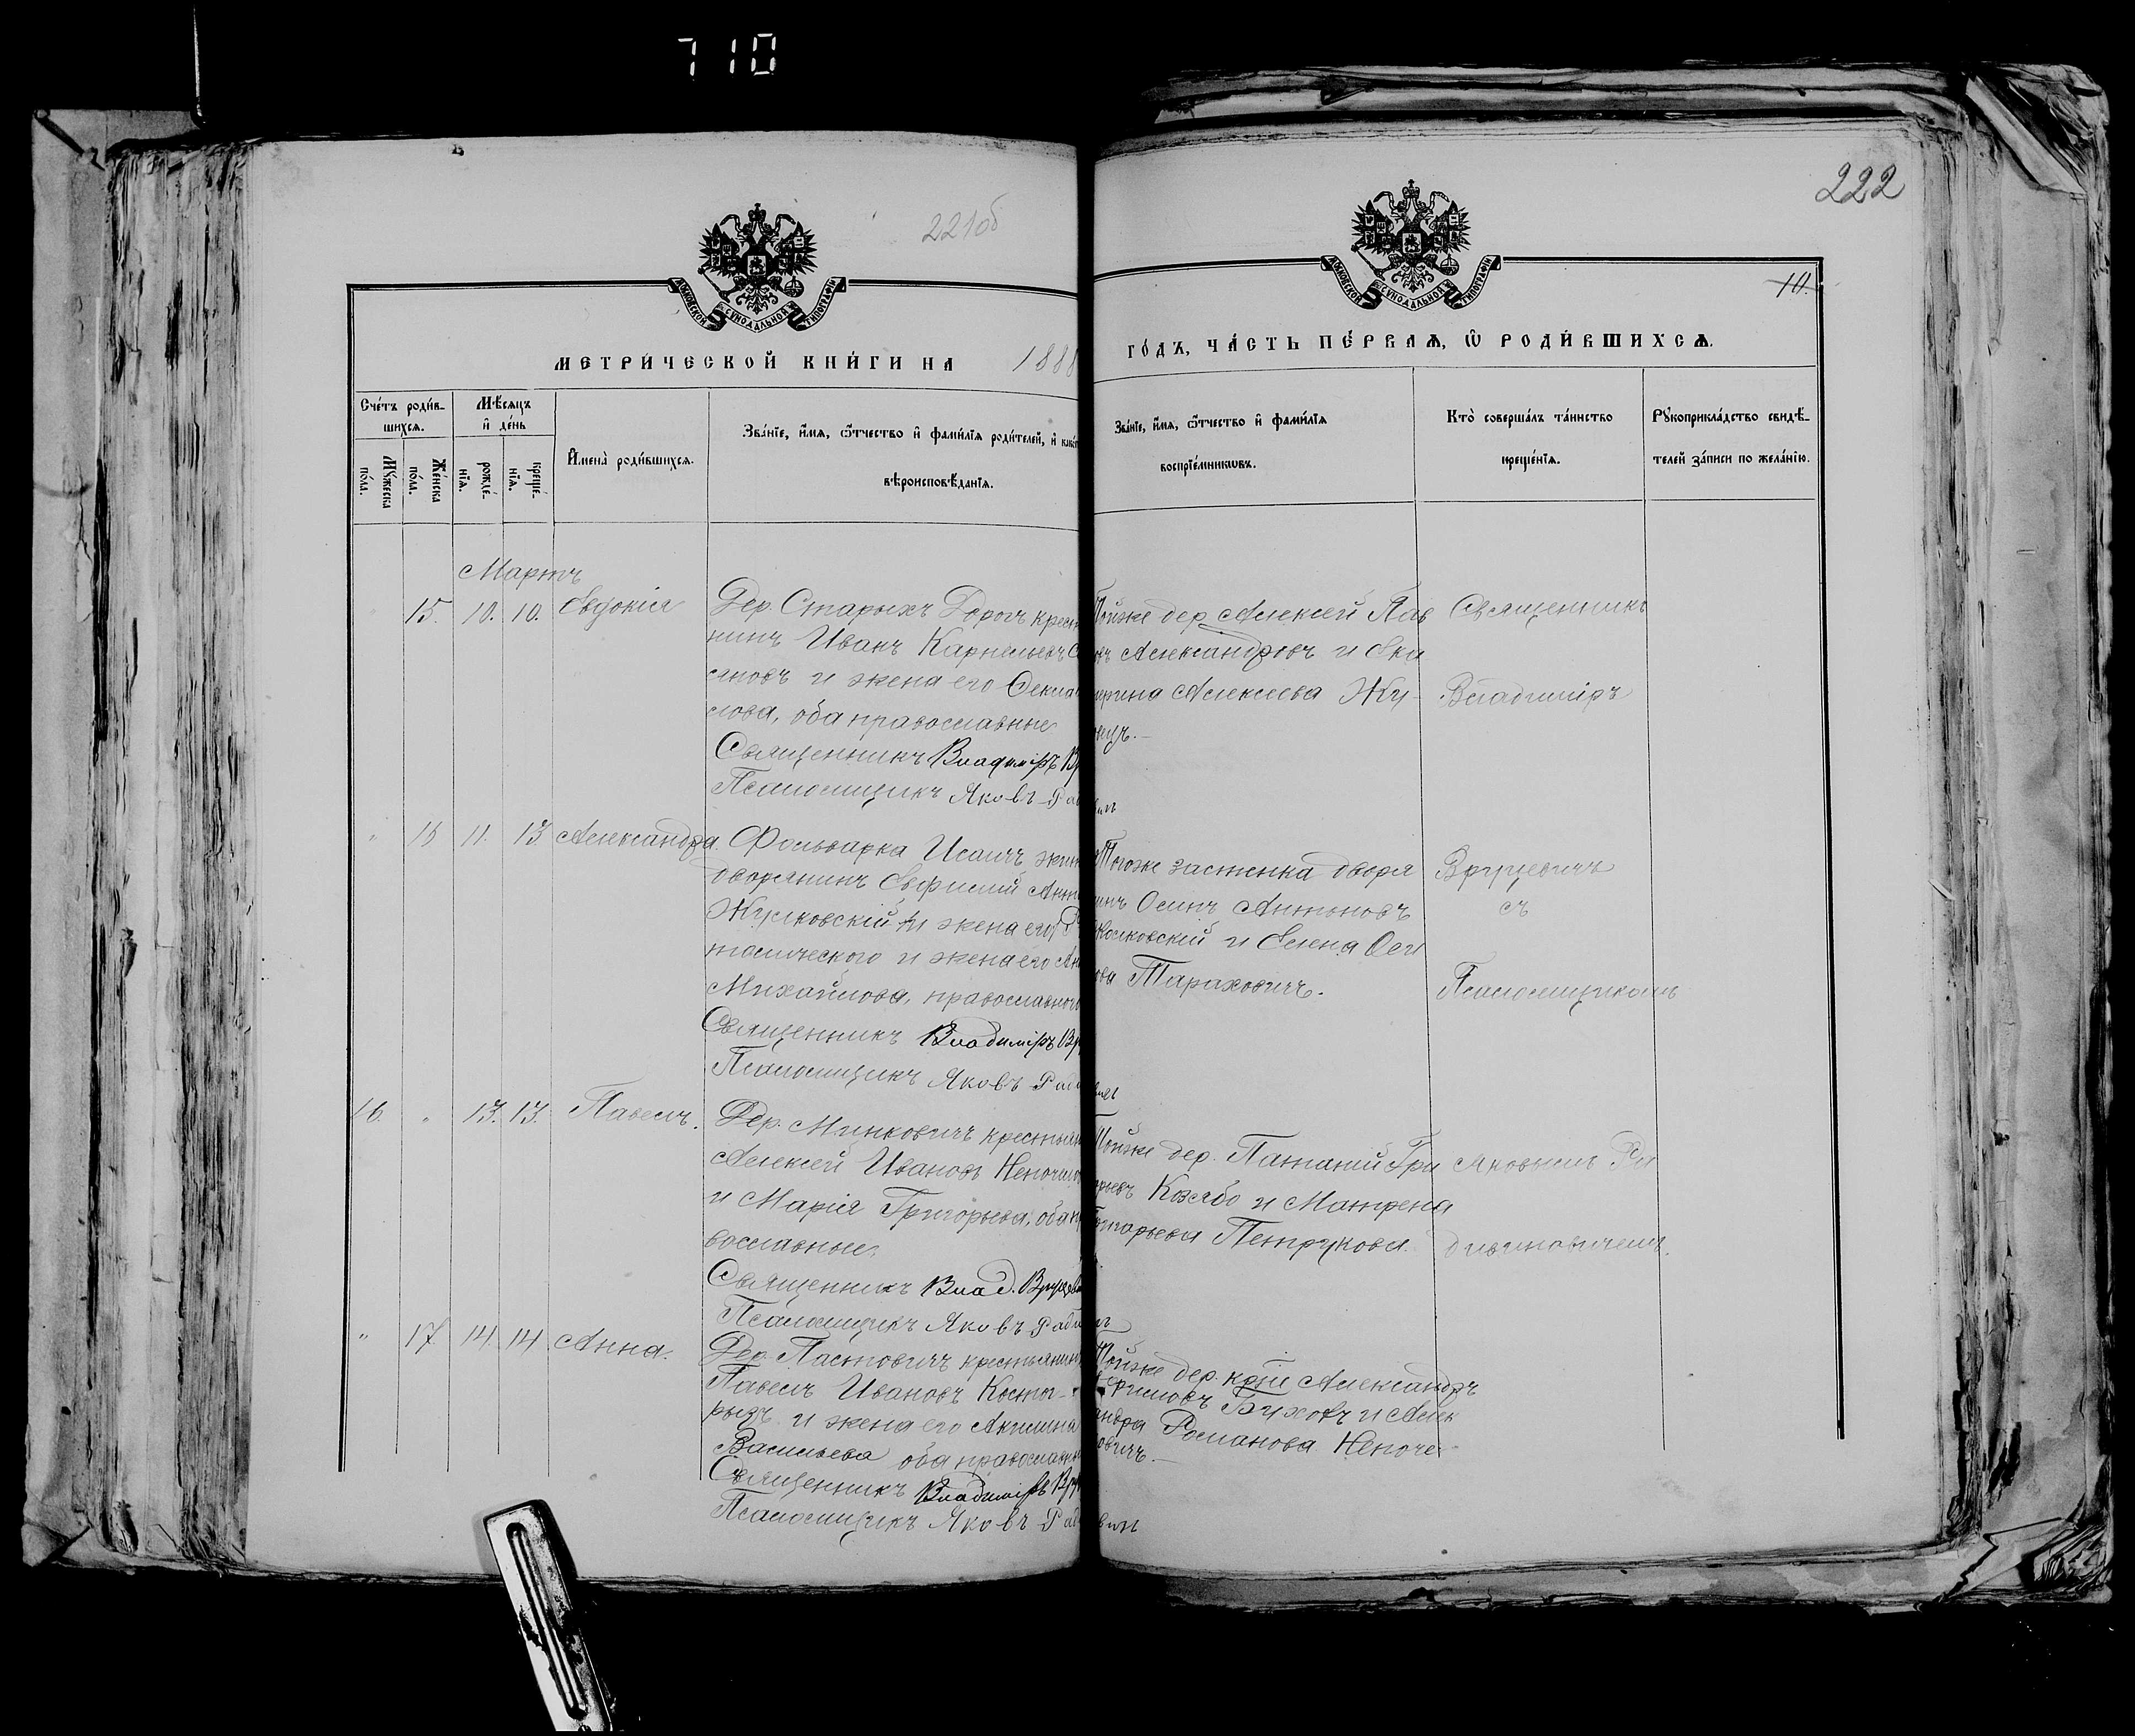 710
222
221об
10.
МОСКОВСКОЙ СѴНОДАЛЬНОЙ ТИПОГРАФІИ
МОСКОВСКОЙ СѴНОДАЛЬНОЙ ТИПОГРАФІИ
МЕТРИ́ЧЕСКОЙ КНИ́ГИ НА 1888
ГО́ДЪ, ЧА́СТЬ ПЕ́РВАѦ, Ѽ РОДИ́ВШИХСѦ.
Сче́тъ роди́в-
шихсѧ.
Мꙋ́жеска по́ла.
Же́нска по́ла.
Мѣ́сѧцъ
и҆ де́нь
рожде́-
нїѧ.
креще́-
нїѧ.
И҆мена̀ роди́вшихсѧ.
Зва́нїе, и҆́мѧ, ѻ҆́тчество и҆ фами́лїѧ роди́телей, и҆
вѣроисповѣ́данїѧ.
Зва́нїе, и҆́мѧ, ѻ҆́тчество и҆ фами́лїѧ
воспрїе́мникωвъ.
Кто̀ соверша́лъ та́инство
креще́нїѧ.
Рꙋкоприкла́дство свидѣ́-
телей за́писи по жела́нїю.
Мартъ
15. 10. 10. Евдокія
Дер. Старыхъ Дорогъ крест
нинъ Иванъ Карнельевъ
сяновъ и жена его Текла
лова, оба православные
Священникъ Владиміръ Вр
Псаломщикъ Яковъ Рад
Тойже дер Алексей Пав
овъ Александровъ и Ека
ерина Алексеева Жу-
нецъ.
Священникъ
Владиміръ
" 16 11. 13 Александра.
Фольварка Исаичъ жит
дворянинъ Евфимий Анто
Жулковскій и жена его Р
толического и жена его Ан
Михайлова, православного
Священникъ Владиміръ Вр
Псаломщикъ Яковъ Рад
Тогоже застенка дворя
инъ Осипъ Антоновъ
и Елена Оси
ова Тарахович.
Вруцевичъ
съ
Псаломщикомъ
16. " 13. 13. Павелъ.
Дер. Минковичъ крестьян
Алексей Иванов Непочело
и Марія Григорьева, оба пр
вославные.
Священникъ Влад. Вруцев
Псаломщикъ Яковъ Рад
Тойже дер. Патапий Гри
орьевъ Козябо и Матрена
Григорьева Петрукова.
Яковымъ Ра
дивиновичемъ.
" 17 14. 14 Анна.
Дер. Пастовичъ крестьянинъ
Павелъ Ивановъ Косты-
рызъ и жена его Акилина
Васильева оба православн
Священникъ Владиміръ Вру
Псаломщикъ Яковъ Рад
Тойже дер. крᵗⁱⁱ Александръ
Ефимовъ Быховъ и Алек
андра Романова Непоче
овичъ.